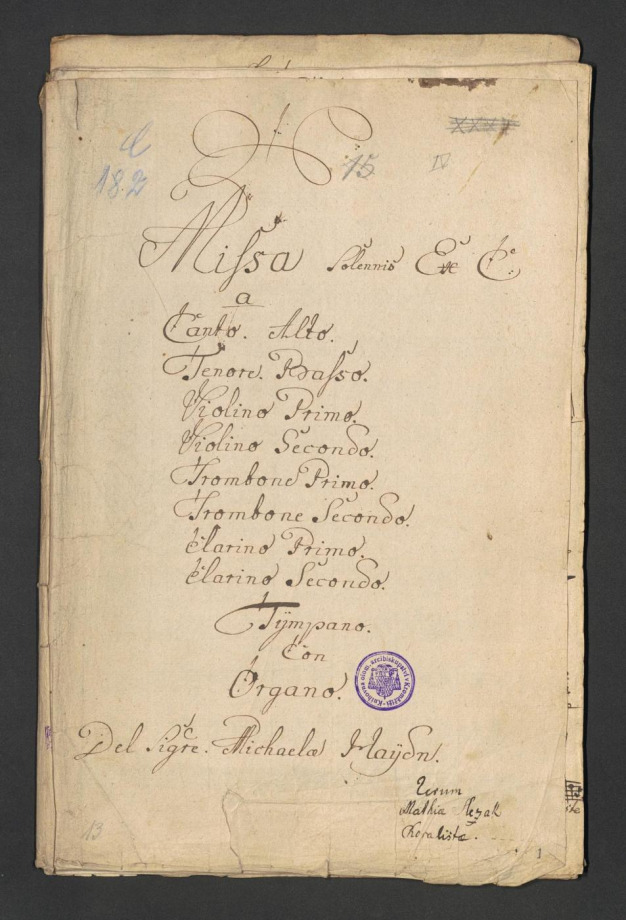 15
18.2
IV
Missa Solennis Ex C:
a
Canto. Alto.
Tenore. Basso.
Violino Primo.
Violino Secondo.
Trombone Primo.
Trombone Secondo.
Clarino Primo.
Clarino Secondo.
Tÿmpano.
Con
Organo.
Del Sigre. Michaele Haÿdn.
Mathia
13
1